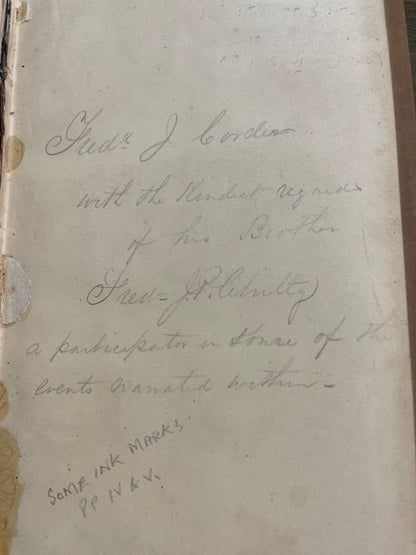 Fredk J Corden
with the Kindest regards
of his Brother
Fred - J. P. Chultz
a participator in some of the
events narrated within -
SOME INK MARKS
PP IV & V.